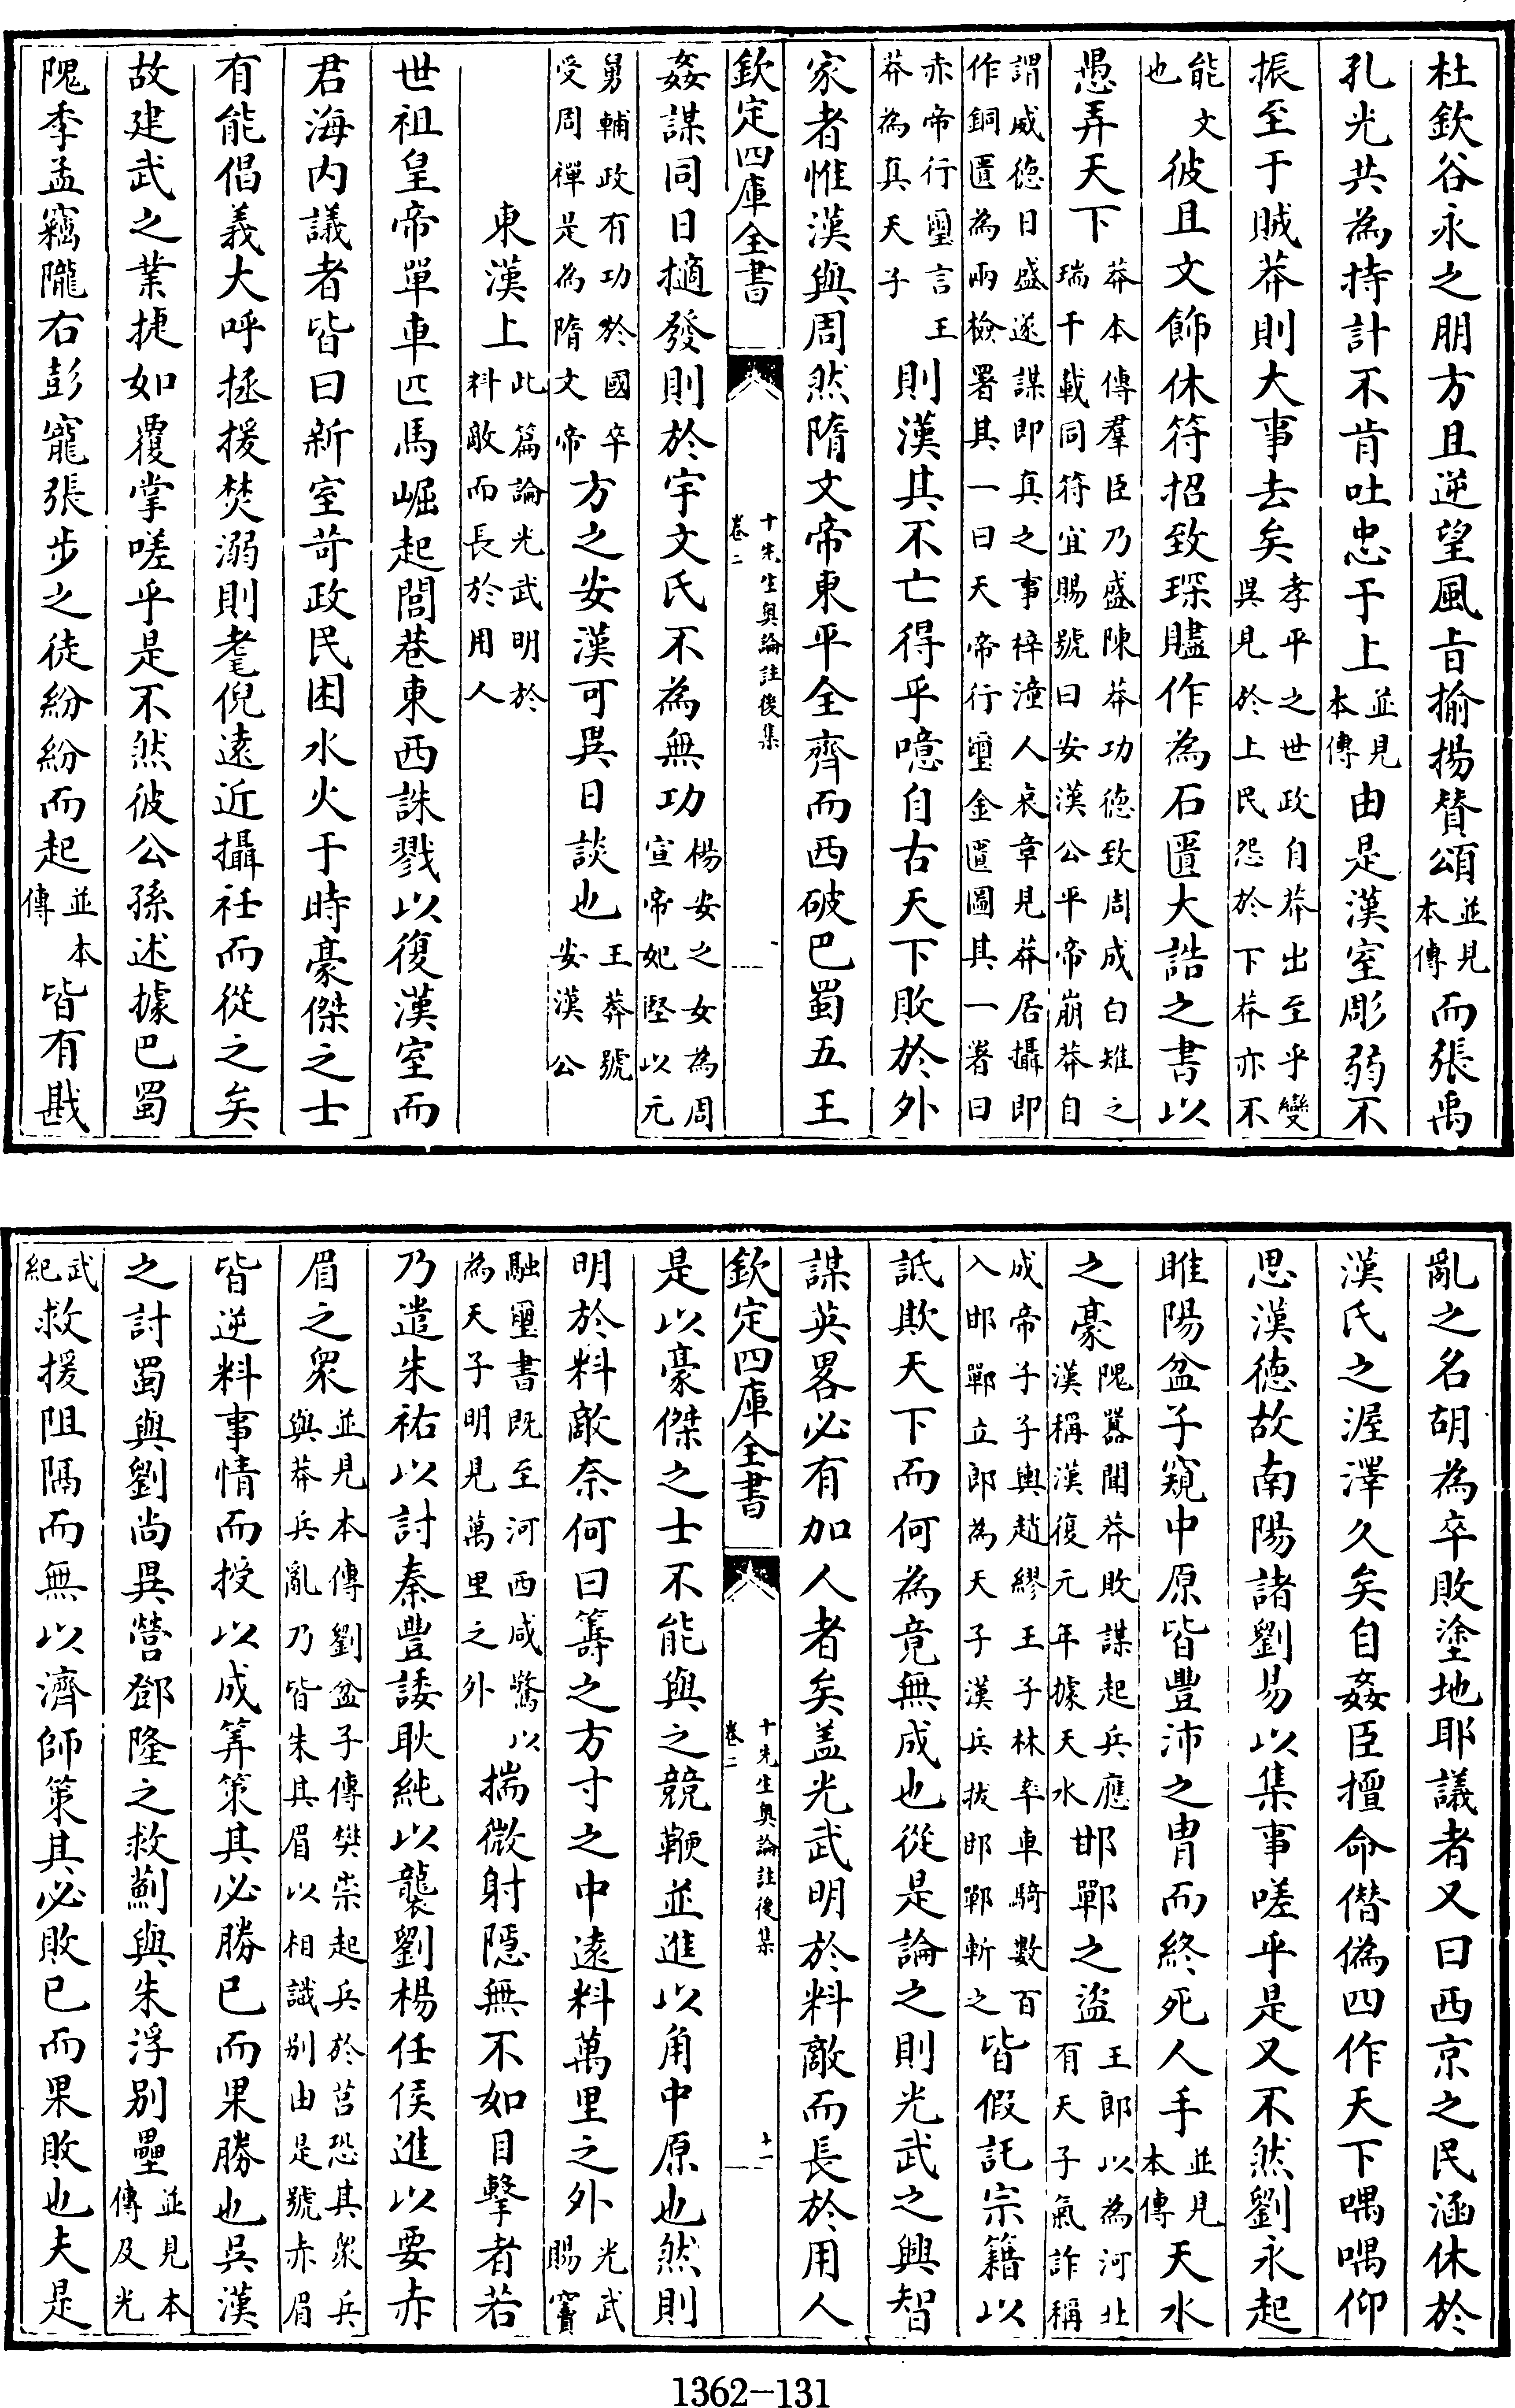 杜欽谷永之朋方且逆望風旨揄揚賛頌並見本傳而張禹
孔光共為持計不肯吐忠于上並見本傳由是漢室彫弱不
振至于賊莽則大事去矣孝平之世政自莽出至乎變異見於上民怨於下莽亦不
能文也彼且文飾休符招致琛贐作為石匱大誥之書以
愚弄天下莽本傳羣臣乃盛陳莽功德致周成白雉之瑞千載同符宜賜號曰安漢公平帝崩莽自
謂威德日盛遂謀即真之事梓潼人哀章見莽居攝即作銅匱為兩檢署其一曰天帝行璽金匱圖其一署曰
赤帝行璽言王莽為真天子則漢其不亡得乎噫自古天下敗於外
家者惟漢與周然隋文帝東平全齊而西破巴蜀五王
欽定四庫全書 十先生奧論註後集 卷二 十
姦謀同日擿發則於宇文氏不為無功楊安之女為周宣帝妃堅以元
舅輔政有功於國卒受周禪是為隋文帝方之安漢可異日談也王莽號安漢公
東漢上此篇論光武明於料敵而長於用人
世祖皇帝單車匹馬崛起閭巷東西誅戮以復漢室而
君海内議者皆曰新室苛政民困水火于時豪傑之士
有能倡義大呼拯援焚溺則耄倪遠近攝衽而從之矣
故建武之業捷如覆掌嗟乎是不然彼公孫述據巴蜀
隗季孟竊隴右彭寵張步之徒紛紛而起並本傳皆有戡
亂之名胡為卒敗塗地耶議者又曰西京之民涵休於
漢氏之渥澤久矣自姦臣擅命僭偽四作天下喁喁仰
思漢德故南陽諸劉易以集事嗟乎是又不然劉永起
睢陽盆子窺中原皆豐沛之胄而終死人手並見本傳天水
之豪隗囂聞莽敗謀起兵應漢稱漢復元年據天水邯鄲之盜王郎以為河北有天子氣詐稱
成帝子子輿趙繆王子林率車騎數百入邯鄲立郎為天子漢兵拔邯鄲斬之皆假託宗籍以
詆欺天下而何為竟無成也從是論之則光武之興智
謀英畧必有加人者矣盖光武明於料敵而長於用人
欽定四庫全書 十先生奧論註後集 卷二 十一
是以豪傑之士不能與之競鞭並進以角中原也然則
明於料敵奈何曰籌之方寸之中遠料萬里之外光武賜竇
融璽書既至河西咸驚以為天子明見萬里之外揣微射隱無不如目擊者若
乃遣朱祐以討秦豐諉耿純以襲劉楊任侯進以要赤
眉之衆並見本傳劉盆子傳樊崇起兵於莒恐其衆兵與莽兵亂乃皆朱其眉以相識别由是號赤眉
皆逆料事情而授以成筭策其必勝已而果勝也吳漢
之討蜀與劉尚異營鄧隆之救薊與朱浮别壘並見本傳及光
武紀救援阻隔而無以濟師策其必敗已而果敗也夫是
1362-131